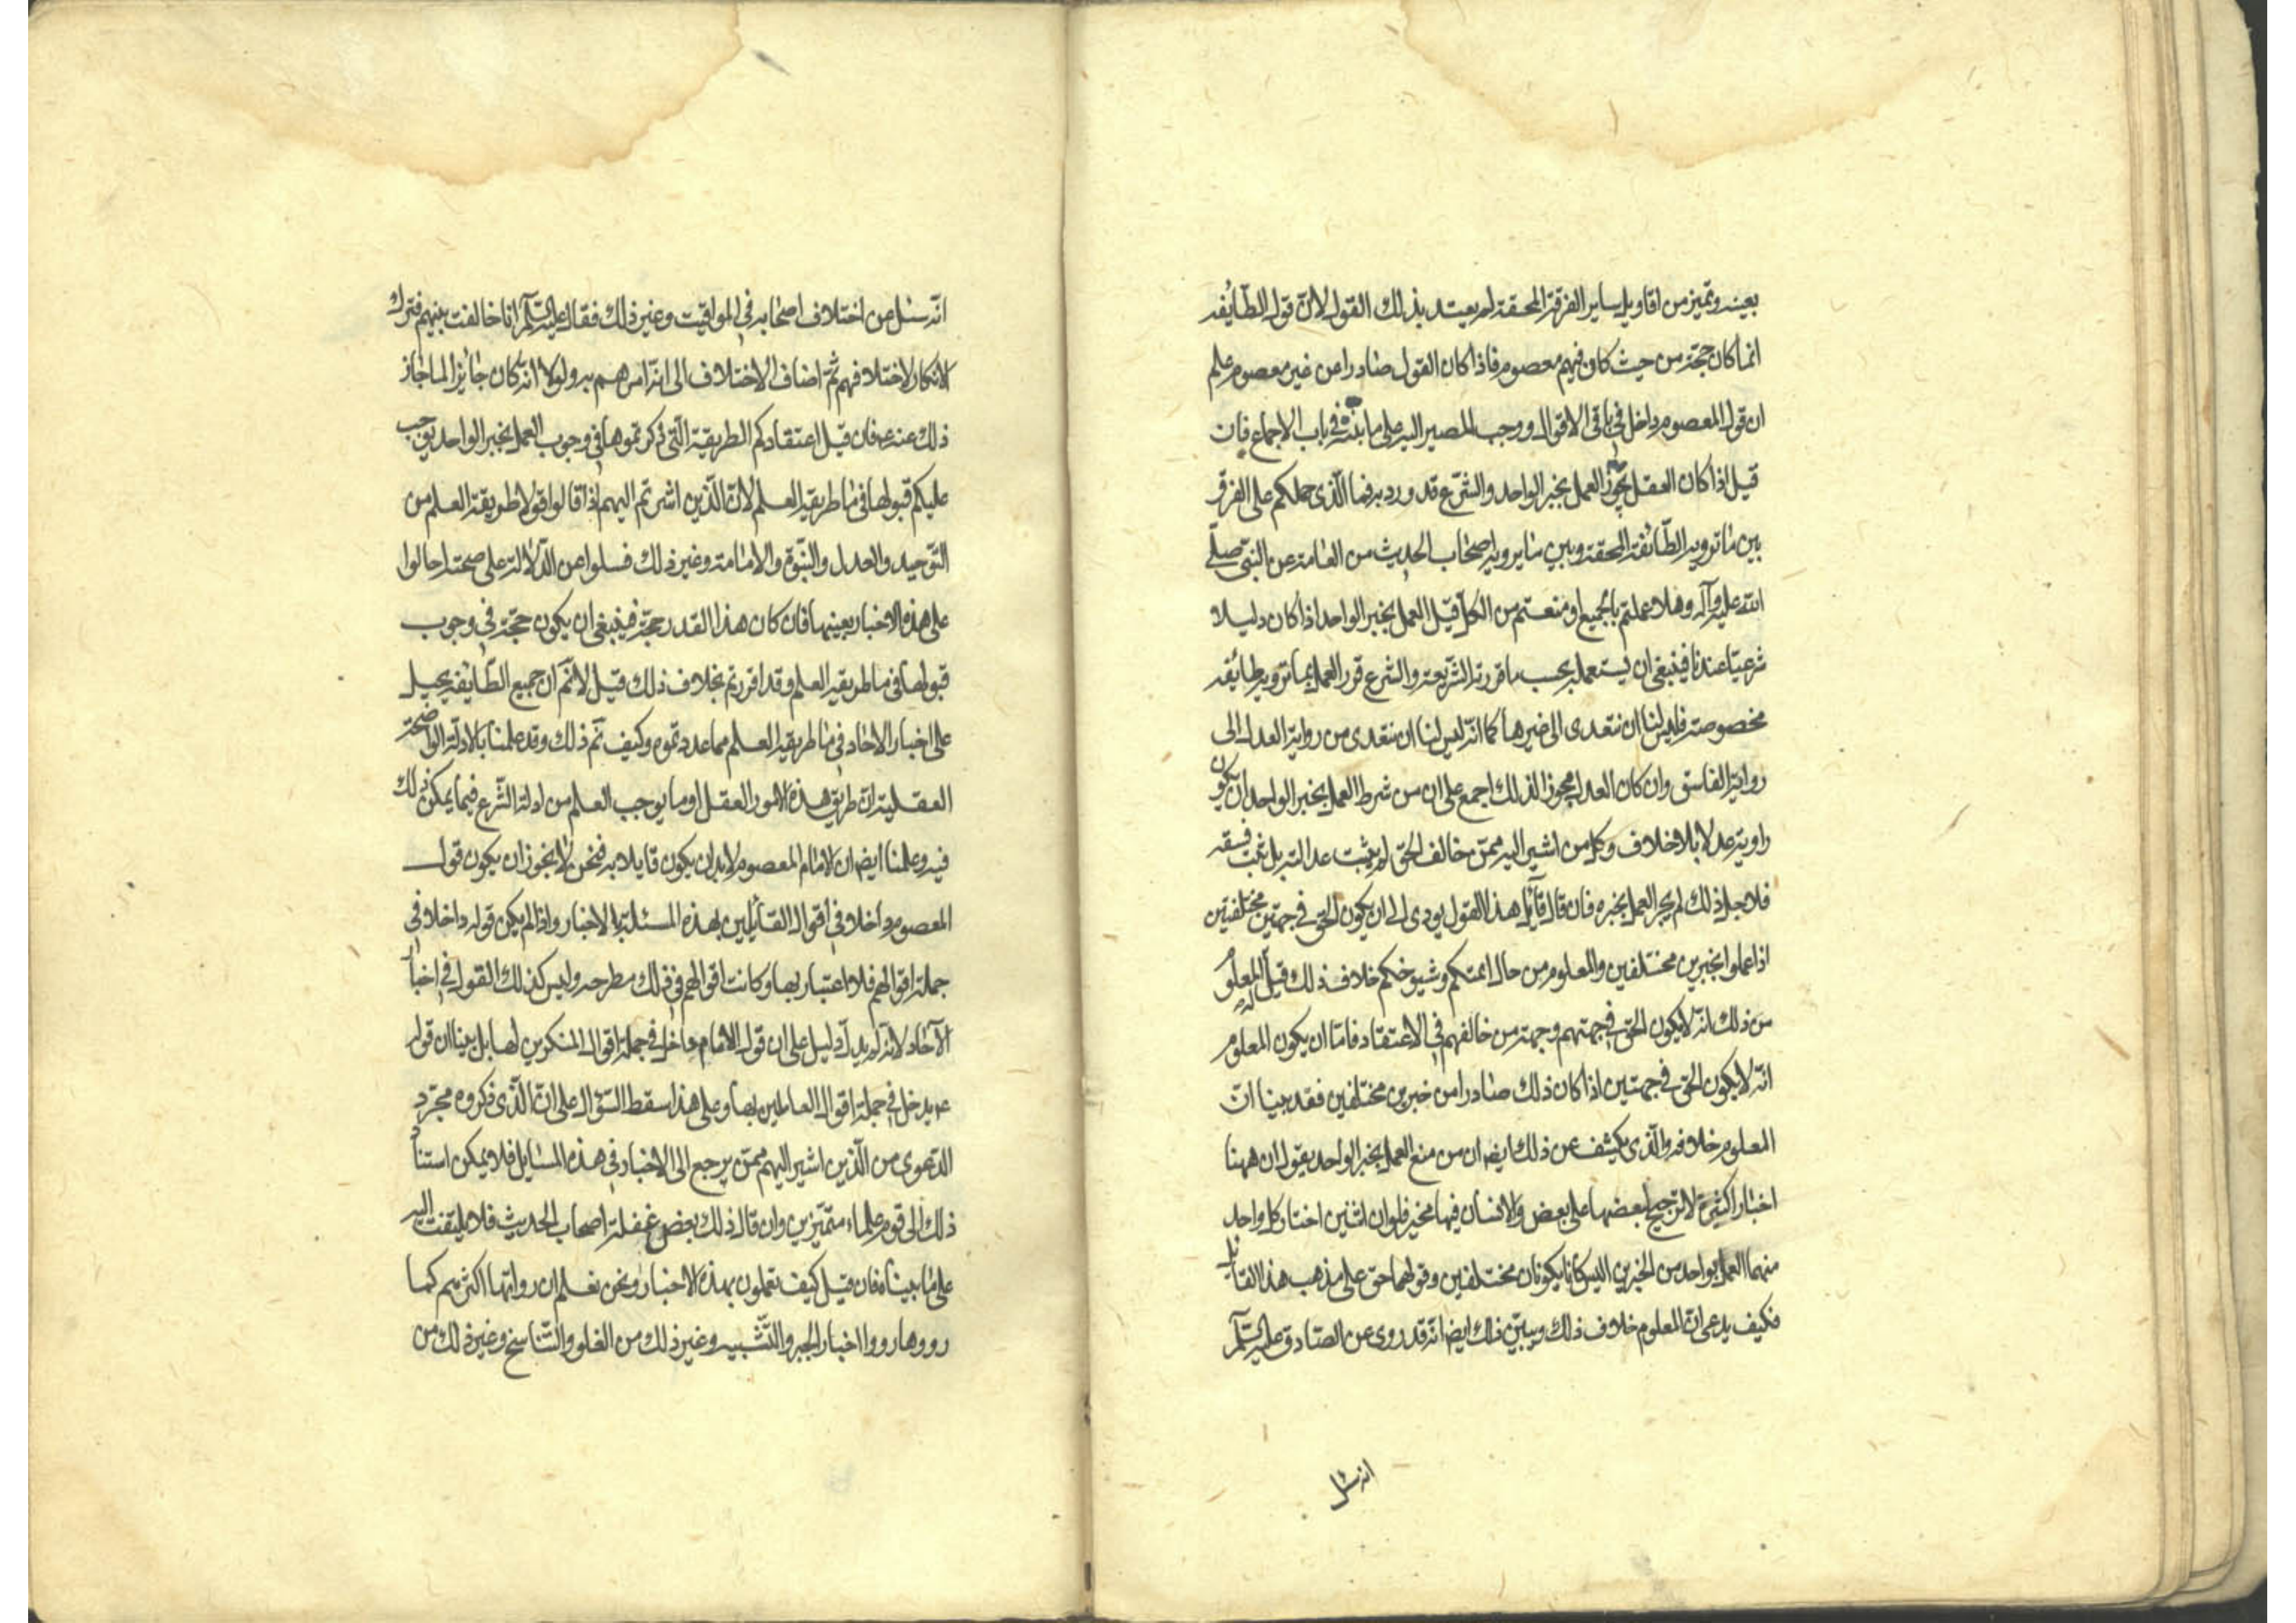 بعينه وتميز من اقاويل ساير الفرقة المحقة لم يعتد بذلك القول لانّ قول الطّائفه
انما كان حجّة من حيث كان فيهم معصوم فاذا كان القول صٰادرا من غير معصوم علم
ان قول المعصوم داخل فى باقى الاقوال ووجب المصير اليه على ما بيّنه فى باب الاجماع فان
قيل اذا كان العقل يجوّز العمل بخبر الواحد والشّرع قد ورد به فما الّذى حملكم على الفرق
بين مٰا ترويه الطّائفة المحقة وبين مٰا يرويه اصحٰاب الحديث من العٰامة عن النبّى صلّى
الله عليه وآله وهلا عملتم بالجميع او منعتم من الكلّ قيل العمل بخبر الواحد اذا كان دليلا
شرعيّا عندنا فينبغى ان يستعمل بحسب ما قررته الشّريعة والشرع قرر العمل بما ترويه طائفه
مخصوصة فليس لنا ان نتعدى الى غيرها كما انّه ليس لنا ان نتعدى من رواية العدل الى
رواية الفاسق وان كان العقل مجوزا لذلك اجمع على ان من شرط العمل بخبر الواحد ان يكون
راويه عدلا بلا خلاف وكل من اشير اليه ممّن خالف الحق لم يثبت عدالته بل ثبت فسقه
فلاجل ذلك لم يجز العمل بخبره فان قال قآئل هذا القول يودى الى ان يكون الحق فى جهتين مختلفتين
اذا عملوا بخبرين مختلفين والمعلوم من حال ائمتكم وشيوخكم خلاف ذلك قيل له المعلوم
من ذلك انّه لا يكون الحق فى جهتهم وجهة من خالفهم فى الاعتقاد فامّا ان يكون المعلوم
انّه لا يكون الحق فى جهتين اذا كان ذلك صٰادرا من خبرين مختلفين فقد بينا انّ
المعلوم خلافه والّذى يكشف عن ذلك ايضا ان من منع العمل بخبر الواحد يقول ان ههنا
اخبٰارا كثيرة لا ترجيح لبعضها على بعض والانسان فيها مخير فلو ان اثنين اختار كل واحد
منهما العمل بواحد من الخبرين اليس كانا يكونان مختلفين وقولهما حق على مذهب هذا القائل
فكيف يدعى انّ المعلوم خلاف ذلك ويبيّن ذلك ايضا انّه قد روى عن الصّادق عليه السّلم
انه سئل
انّه سئل عن اختلاف اصحٰابه فى المواقيت وغير ذلك فقال عليه السّلم انا خالفت بينهم فترك
الانكار لاختلافهم ثمّ اضاف الاختلاف الى انّه امرهم به ولولا انّه كان جٰائزا لما جٰاز
ذلك عنه ع فان قيل اعتقادكم الطريقة الّتى ذكرتموها فى وجوب العمل بخبر الواحد يوجب
عليكم قبولها فى مٰا طريقه العلم لانّ الّذين اشرتم اليهم اذا قالوا قولا طريقة العلم من
التّوحيد والعدل والنبّوة والامٰامة وغير ذلك فسئلوا عن الدّلالة على صحته احالوا
على هذه الاخبار بعينها فان كان هذا القدر حجة فينبغى ان يكون حجّة فى وجوب
قبولها فى ما طريقه العلم وقد اقررتم بخلاف ذلك قيل لا نّم ان جميع الطّائفه يحيل
على اخبار الاحٰاد فى مٰا طريقه العلم مما عددتموه وكيف نّم ذلك وقد علمنا بالادلّة الواضحة
العقلية ان طريق هذه الامور العقل او ما يوجب العلم من ادلة الشّرع فيما يمكن ذلك
فيه وعلمنا ايضا ان الامٰام المعصوم لابد ان يكون قايلا به فنحن لا نجوز ان يكون قول
المعصوم داخلا فى اقوال القٰائلين بهذه المسئلة بالاخبار واذا لم يكن قوله داخلا فى
جملة اقوالهم فلا اعتبار بها وكانت اقوالهم فى ذلك مطرحه وليس كذلك القول فى اخبار
الآحٰاد لانّه لم يدلّ دليل على ان قول الامٰام داخل فى جملة اقوال المنكرين لها بل بينا ان قوله
ع يدخل فى جملة اقوال العاملين بها وعلى هذا سقط السّؤال على انّ الّذى ذكروه مجرّد
الدعوى من الّذين اشير اليهم ممّن يرجع الى الاخبار فى هذه المسٰايل فلا يمكن استناد
ذلك الى قوم علماء متميّزين وان قال ذلك بعض غفلة اصحاب الحديث فلا يلتفت اليه
على مٰا بيناه فان قيل كيف تعملون بهذه الاخبار ونحن نعلم ان رواتها اكثرهم كما
رووها رووا اخبار الجبر والتّشبيه وغير ذلك من الغلو والتّناسخ وغير ذلك من